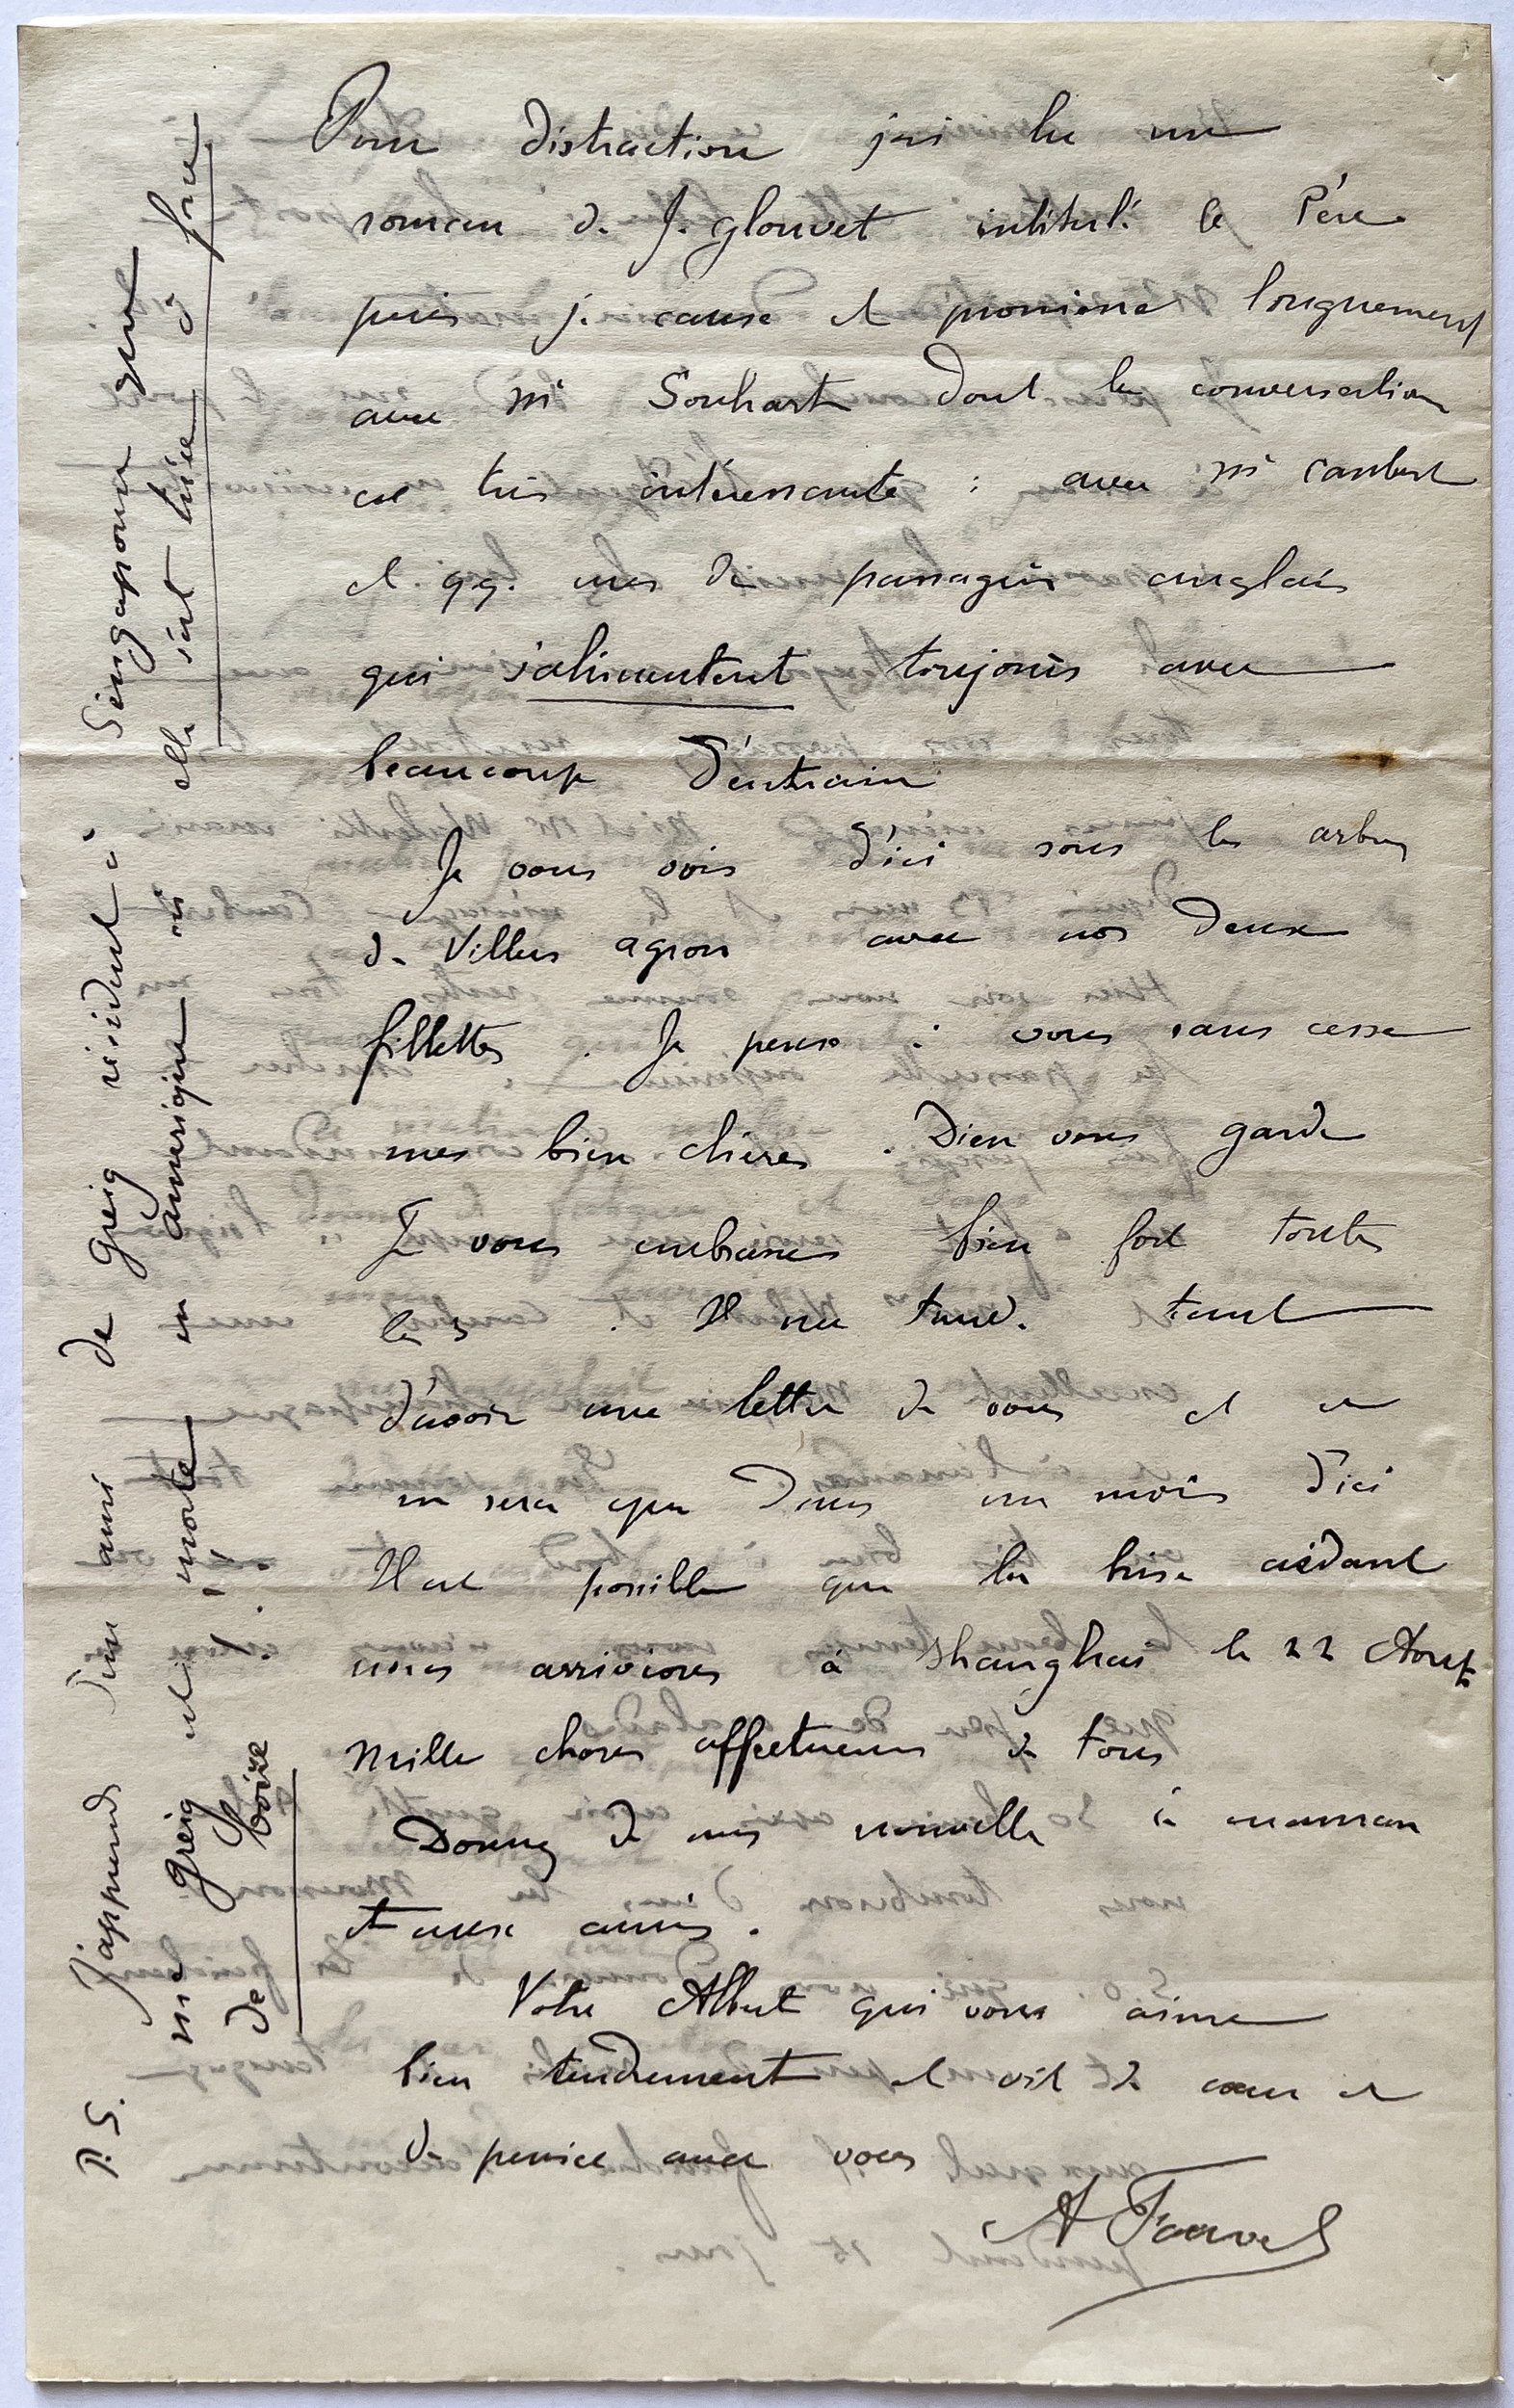 Pour distraction j'ai lu un
roman de J. Glouvet intitulé le Père
puis je cause et promène longuement
avec Mr Souhart dont la conversation
est très intéressante : avec Mr Caubert
et qq. uns de passagers anglais
qui s'alimentent toujours avec
beaucoup d'entrain
Je vous vois d'ici sous les arbres
de Villers agron avec nos deux
fillettes. Je pense à vous sans cesse
mes bien chères. Dieu vous garde
Je vous embrasse bien fort toutes
les 3. Il me tarde tant
d'avoir une lettre de vous et ce
ne sera que dans un mois d'ici
Il est possible que la brise aidant
nous arrivions à Shanghai le 22 Aout
Mille choses affectueuses à tous
Donnez de mes nouvelles à maman
et aux amis.
Votre Albert qui vous aime
bien tendrement et vit de coeur et
de pensée avec vous
A Fauvel
P.S. J'apprends d'un ami de Greig résidant à Singapour que
Me Greig est morte en Amérique où elle s'est tuée à force
de boire !!!